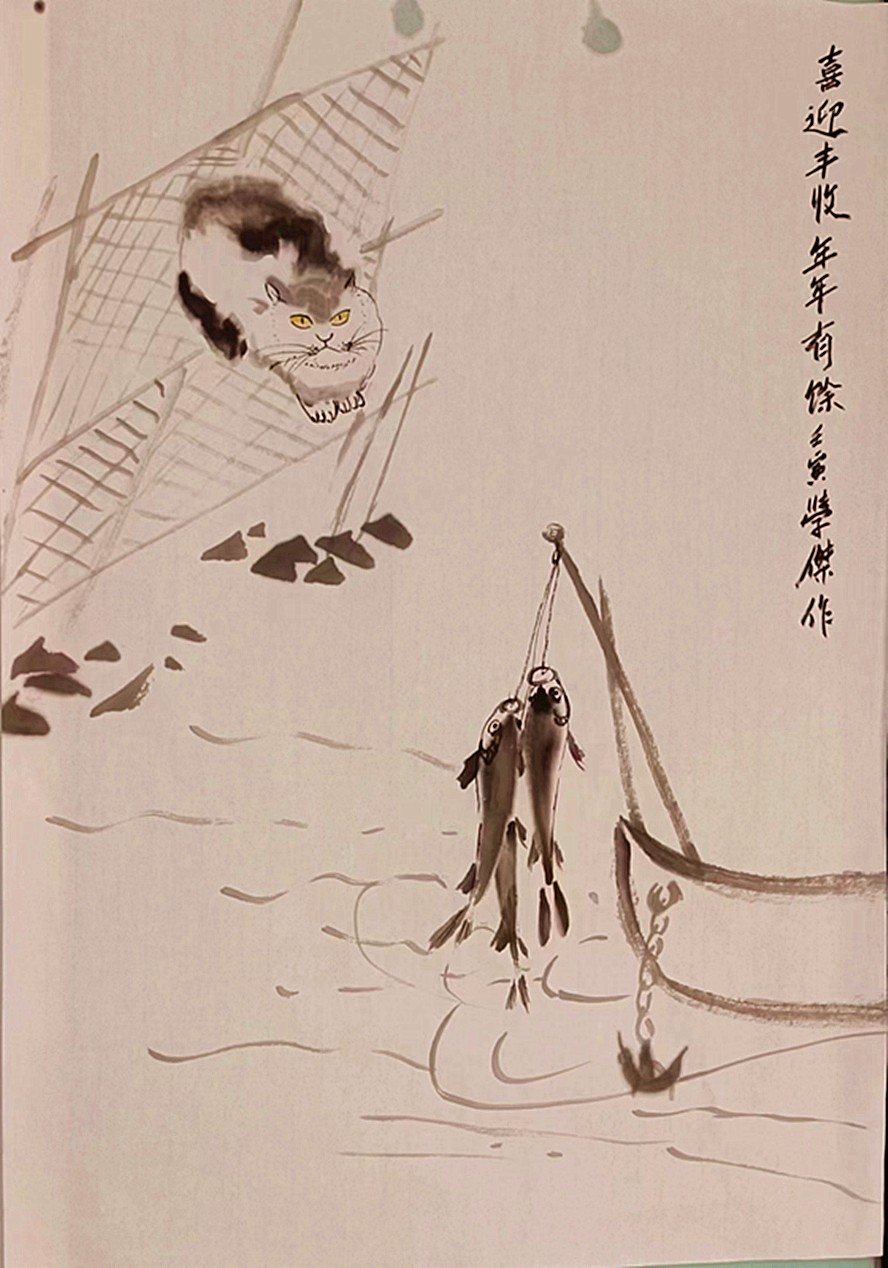 喜迎丰收年年有馀壬寅荣傑作